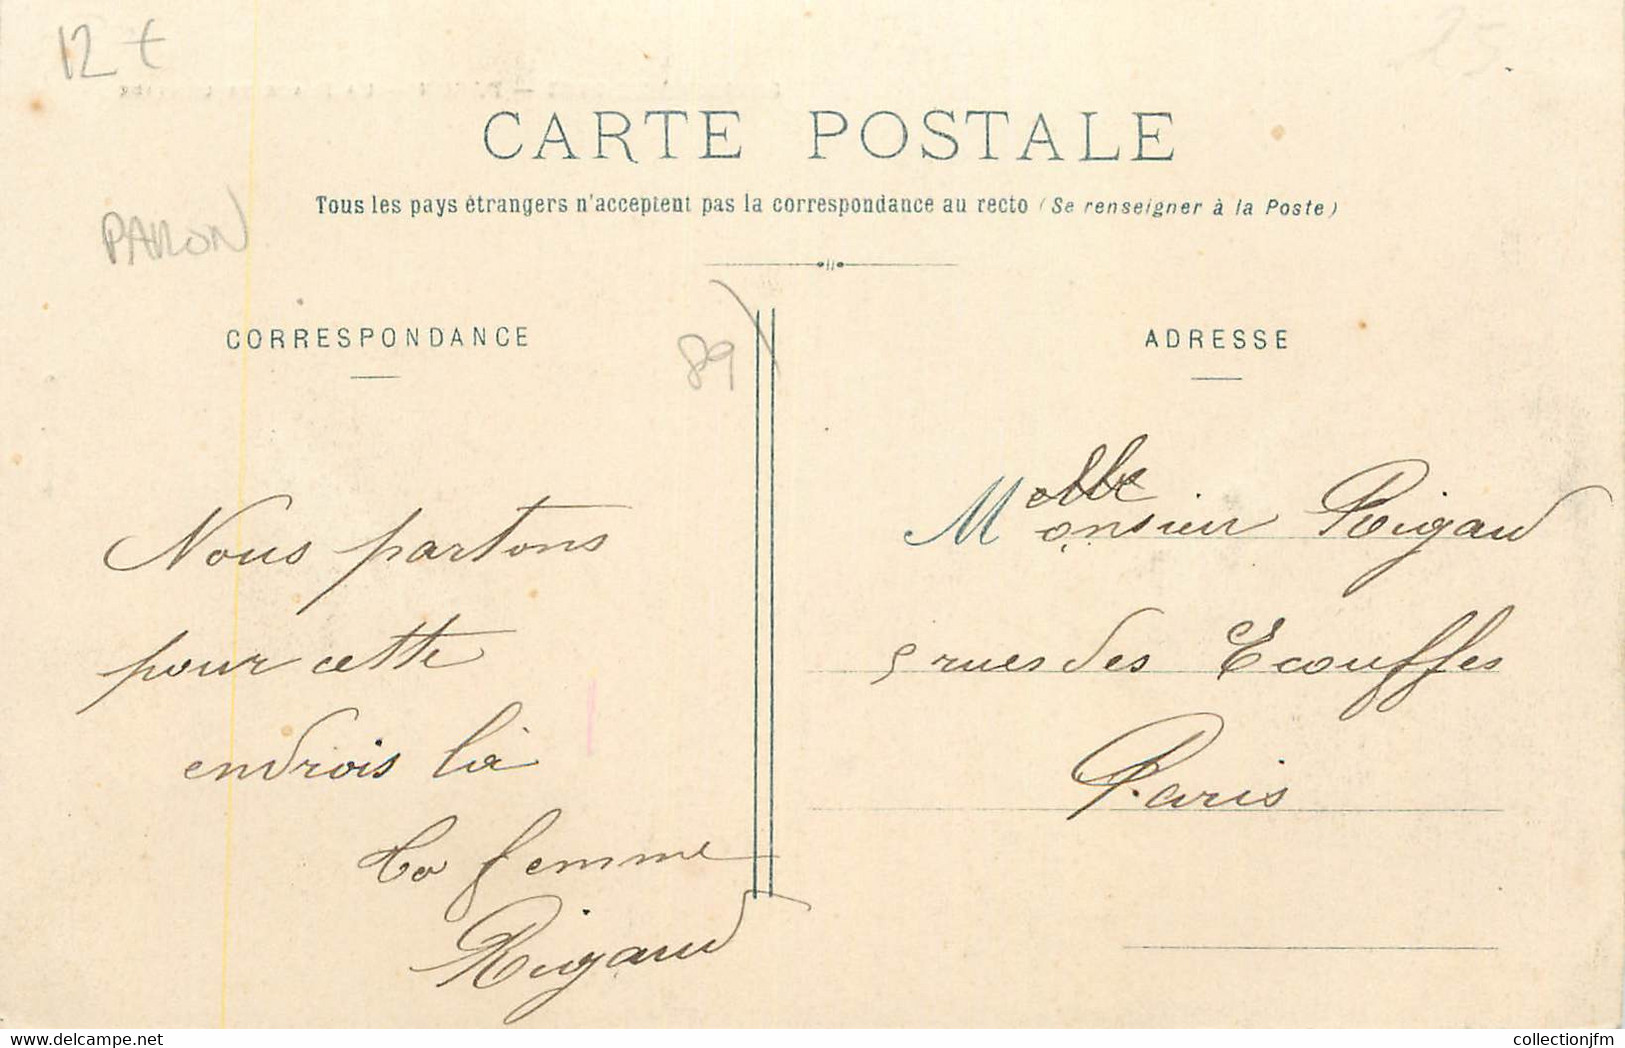 12 €
CARTE POSTALE
Tous les pays étrangers n'acceptent pas la correspondance au recto (Se renseigner à la Poste)
PARON
CORRESPONDANCE
89
Nous partons
pour cette
endrois là
ta femme
Rigaud
ADRESSE
Melle
Monsieur Rigaud
5 rues des Ecouffes
Paris
collectionjfm